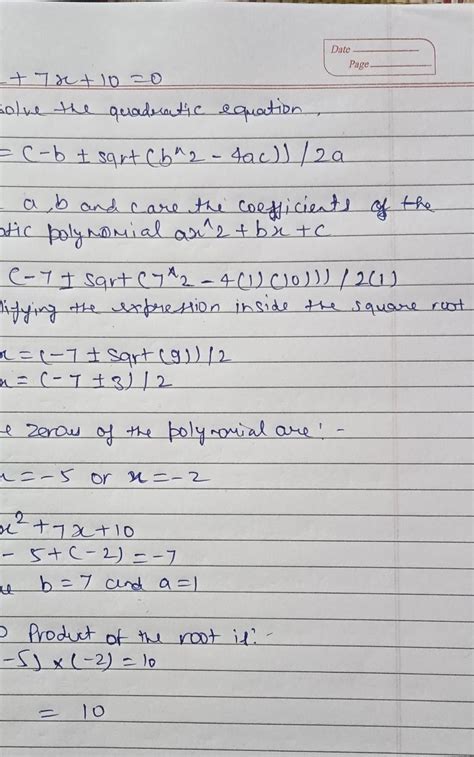 Date
Page
+ 7x + 10 = 0
solve the quadratic equation,
= (-b ± sqrt(b^2 - 4ac)) / 2a
a, b and c are the coefficients of the
atic polynomial ax^2 + bx + c
(-7 ± sqrt(7^2 - 4(1)(10))) / 2(1)
lifying the expression inside the square root
x = (-7 ± sqrt(9)) / 2
x = (-7 ± 3) / 2
e zeroes of the polynomial are! -
x = -5 or x = -2
x² + 7x + 10
- 5 + (-2) = -7
b = 7 and a = 1
Product of the root is: -
-5) × (-2) = 10
= 10